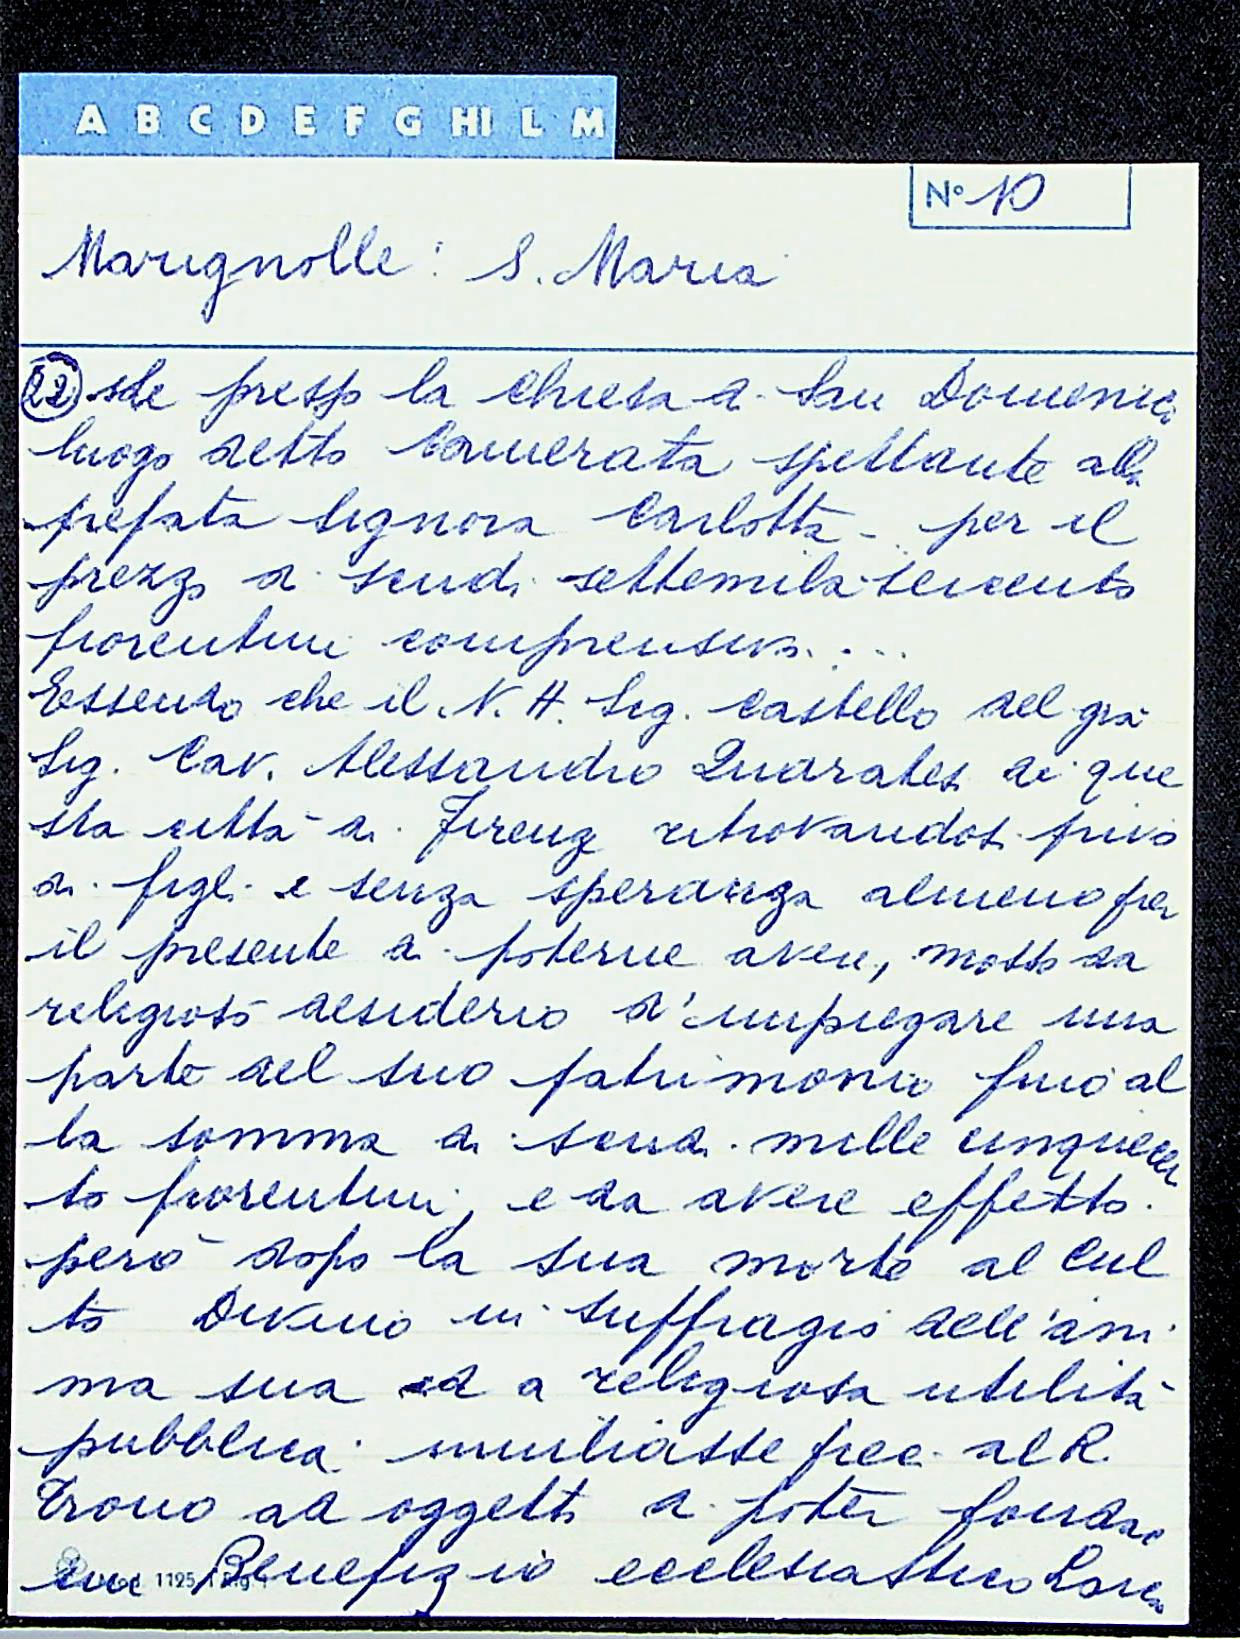 A B C D E F G HI L M
N° 10
Marignolle: S. Maria
22) ste presso la Chiesa di San Domenico
luogo detto Camerata spettante alla
prefata Signora Carlotta - per il
prezzo di scudi settemila seicento
fiorentini comprensivi....
Essendo che il N. H. Sig. Castello del già
Sig. Cav. Alessandro Quaratesi di que
sta città di Firenze ritrovandosi privo
di figli e senza speranza almeno per
il presente di poterne avere, mosso da
religioso desiderio d'impiegare una
parte del suo patrimonio fino al
la somma di scudi mille cinquecen
to fiorentini, e da avere effetto
però dopo la sua morte al Cul
to Divino in Suffragio dell'ani
ma sua ed a religiosa utilità
pubblica umiliasse preci al R.
Trono ad oggetto di poter fondare
un Benefizio ecclesiastico
Mod. 1125